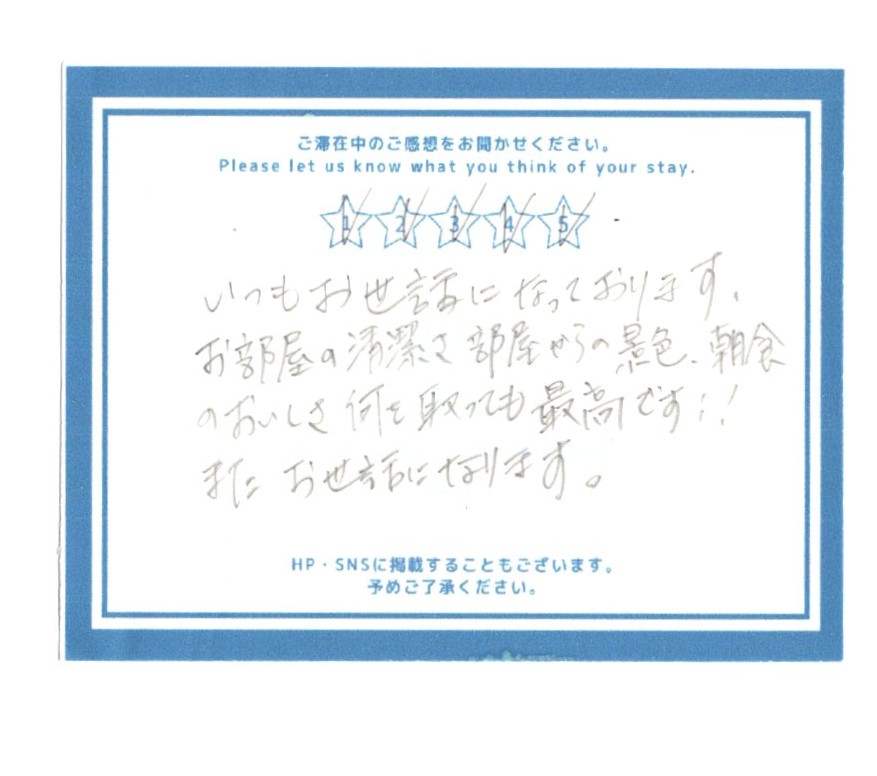 ご滞在中のご感想をお聞かせください。
Please let us know what you think of your stay.
1 2 3 4 5
いつもお世話になっております。
お部屋の清潔さ部屋からの景色、朝食
のおいしさ何を取っても最高です!!
またお世話になります。
HP・SNSに掲載することもございます。
予めご了承ください。